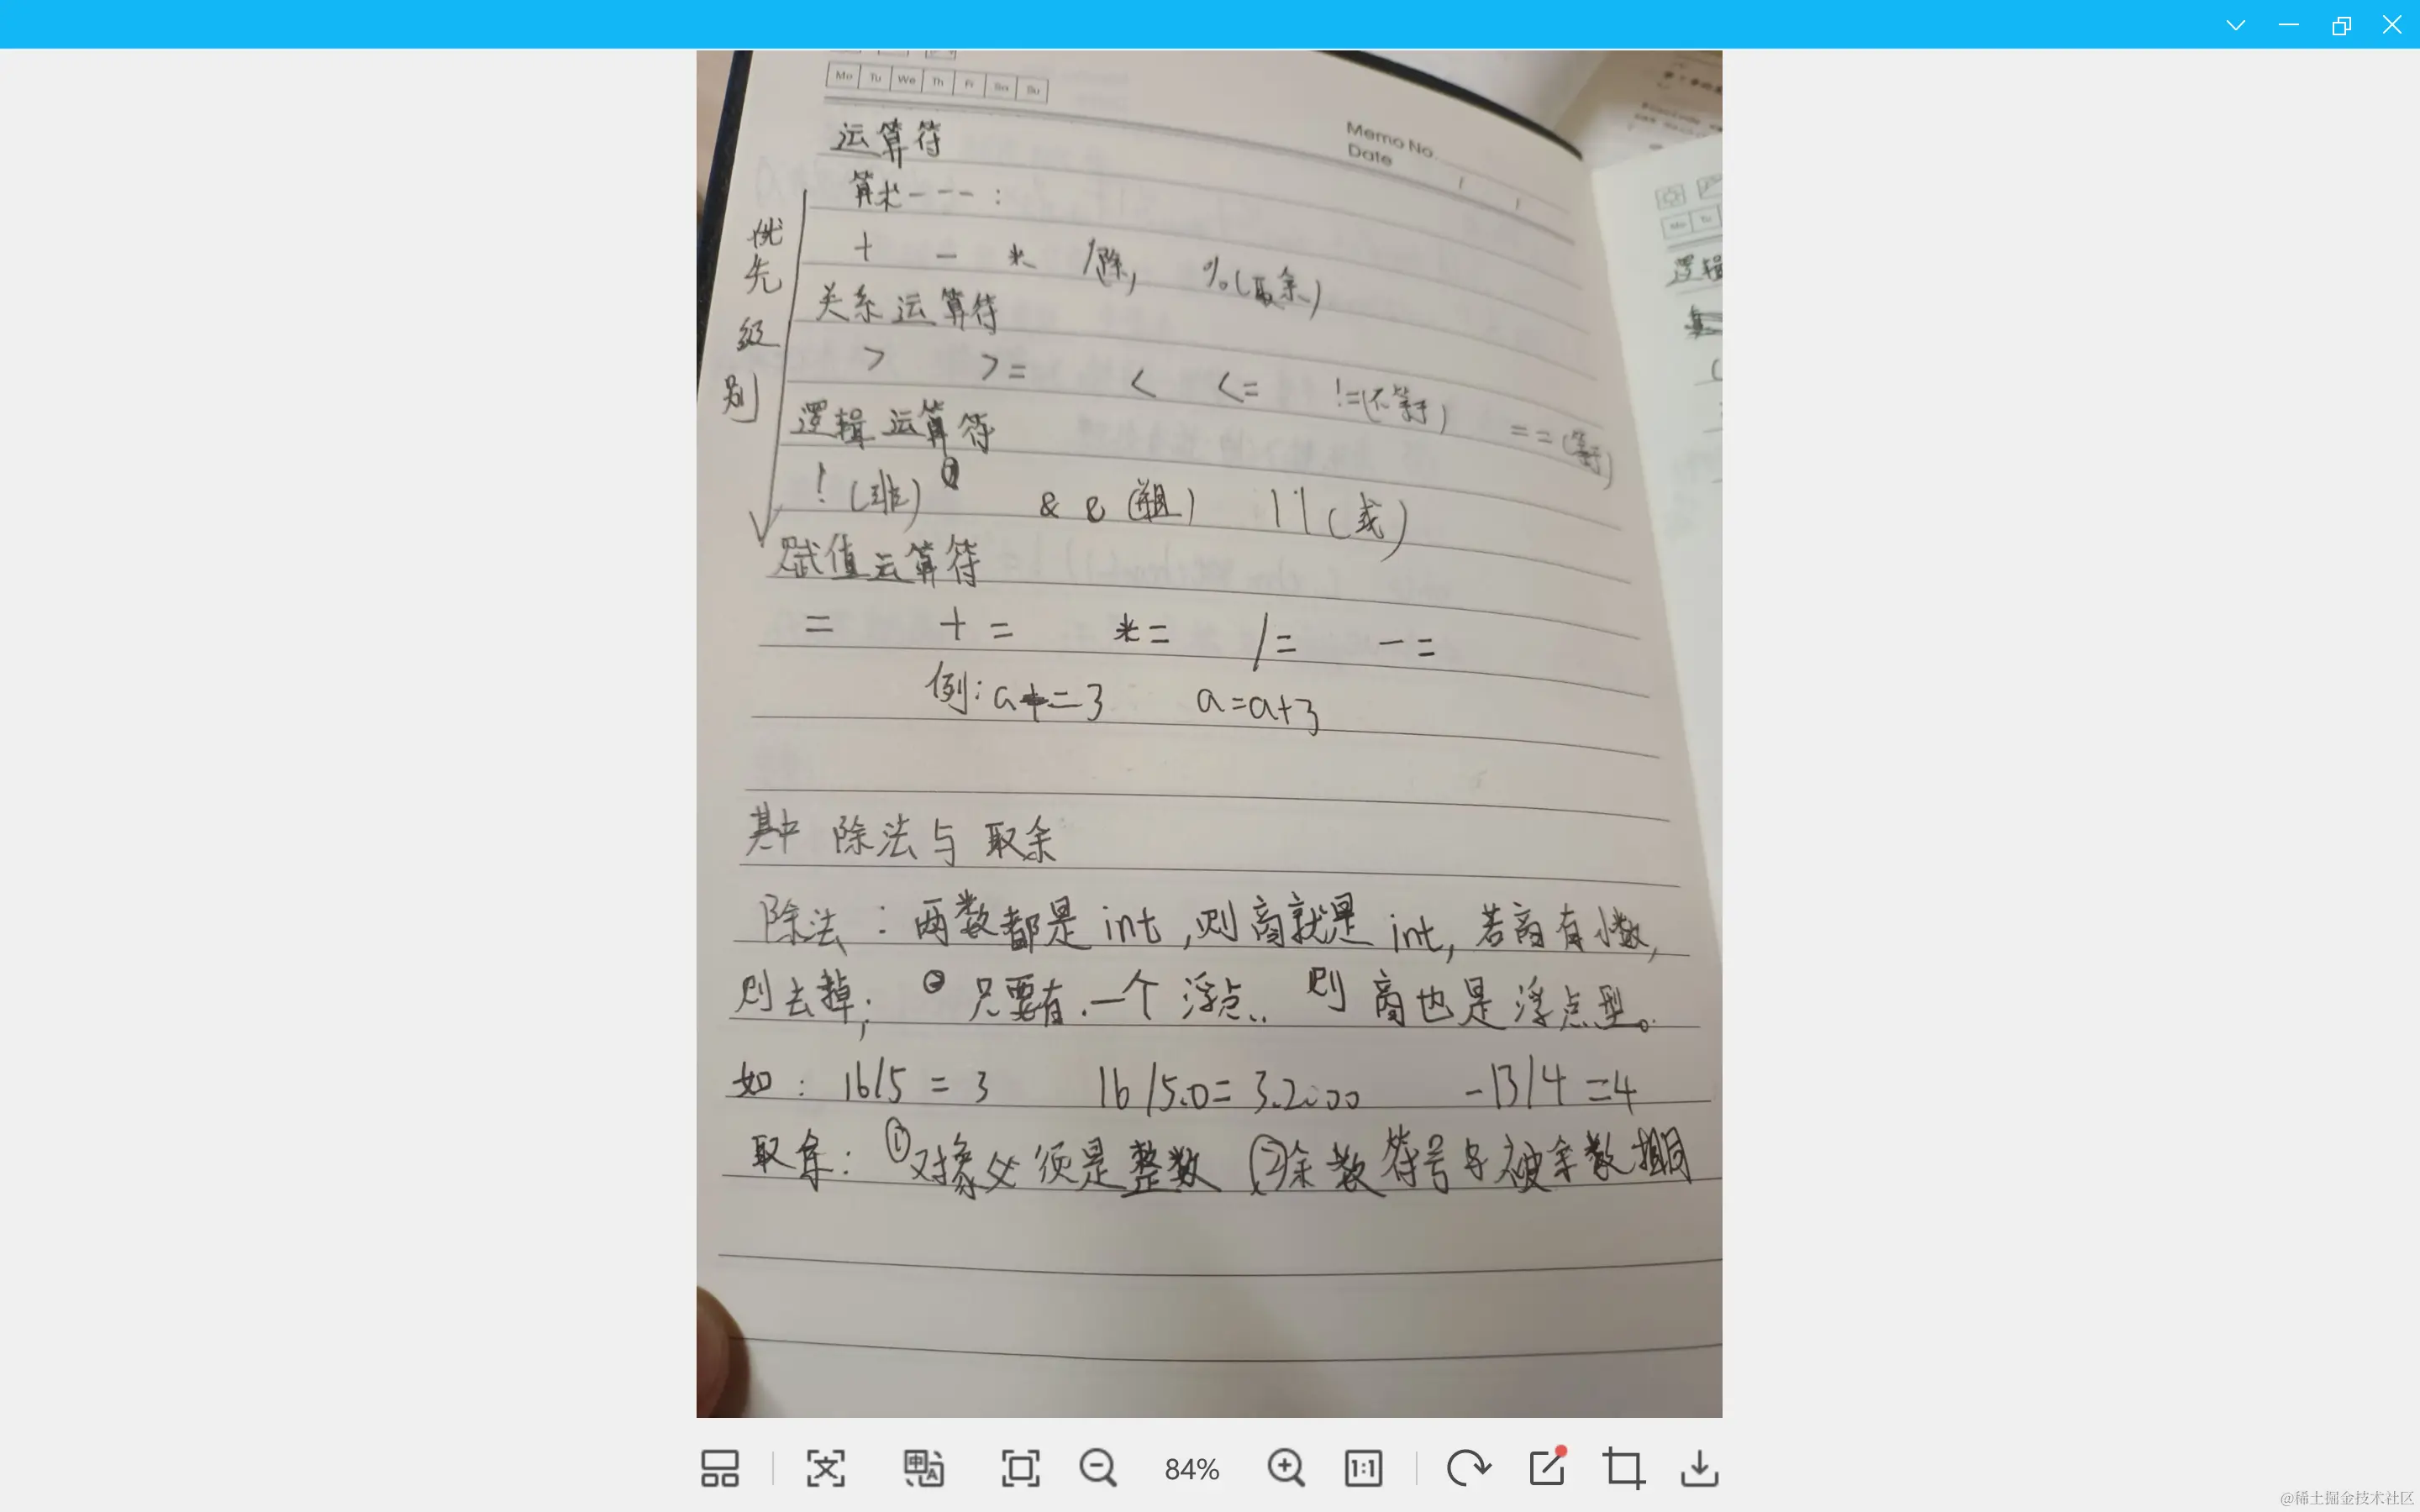 Mo Tu We Th Fr Sa Su
Memo No.
Date / /
运算符
算术---:
+ - * /除, %(取余)
关系运算符
> >= < <= !=(不等于) ==(等于)
逻辑运算符
!(非) && (且) || (或)
赋值运算符
= += *= /= -=
例: a+=3 a=a+3
优先级别
其中 除法与 取余
除法: 两数都是 int,则商就是 int, 若商有小数,
则去掉; ② 只要有.一个 浮点.. 则 商也是浮点型。
如: 16/5 = 3 16/5.0= 3.2000 -13/4 =4
取余: ①对象必须是整数 ②余数符号与被余数相同
逻辑
84%
1:1
@稀土掘金技术社区